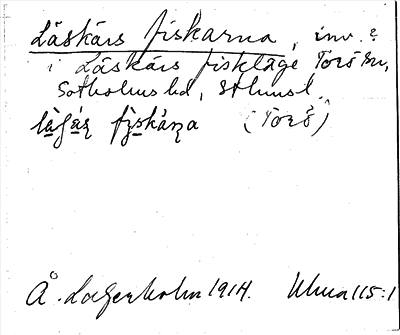 Läskärs fiskarna, inv. ?
i Läskärs fiskläge Torö sn,
Sotholms hd, Sthmsl.
fiskarna (Torö)
Å. Lagerholm 1914. Ulma 115:1